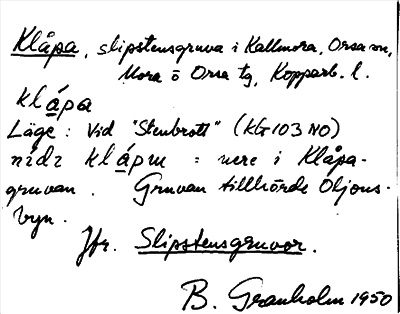 Klåpa, slipstensgruva i Kallmora, Orsa sn,
Mora o Orsa tg, Kopparb. l.
klåpa
Läge: Vid "Stenbrott" (KG103 NO)
nidɪ klåpm = nere i Klåpa-
gruvan. Gruvan tillhörde Oljons-
byn.
Jfr. Slipstensgruvor.
B. Granholm 1950